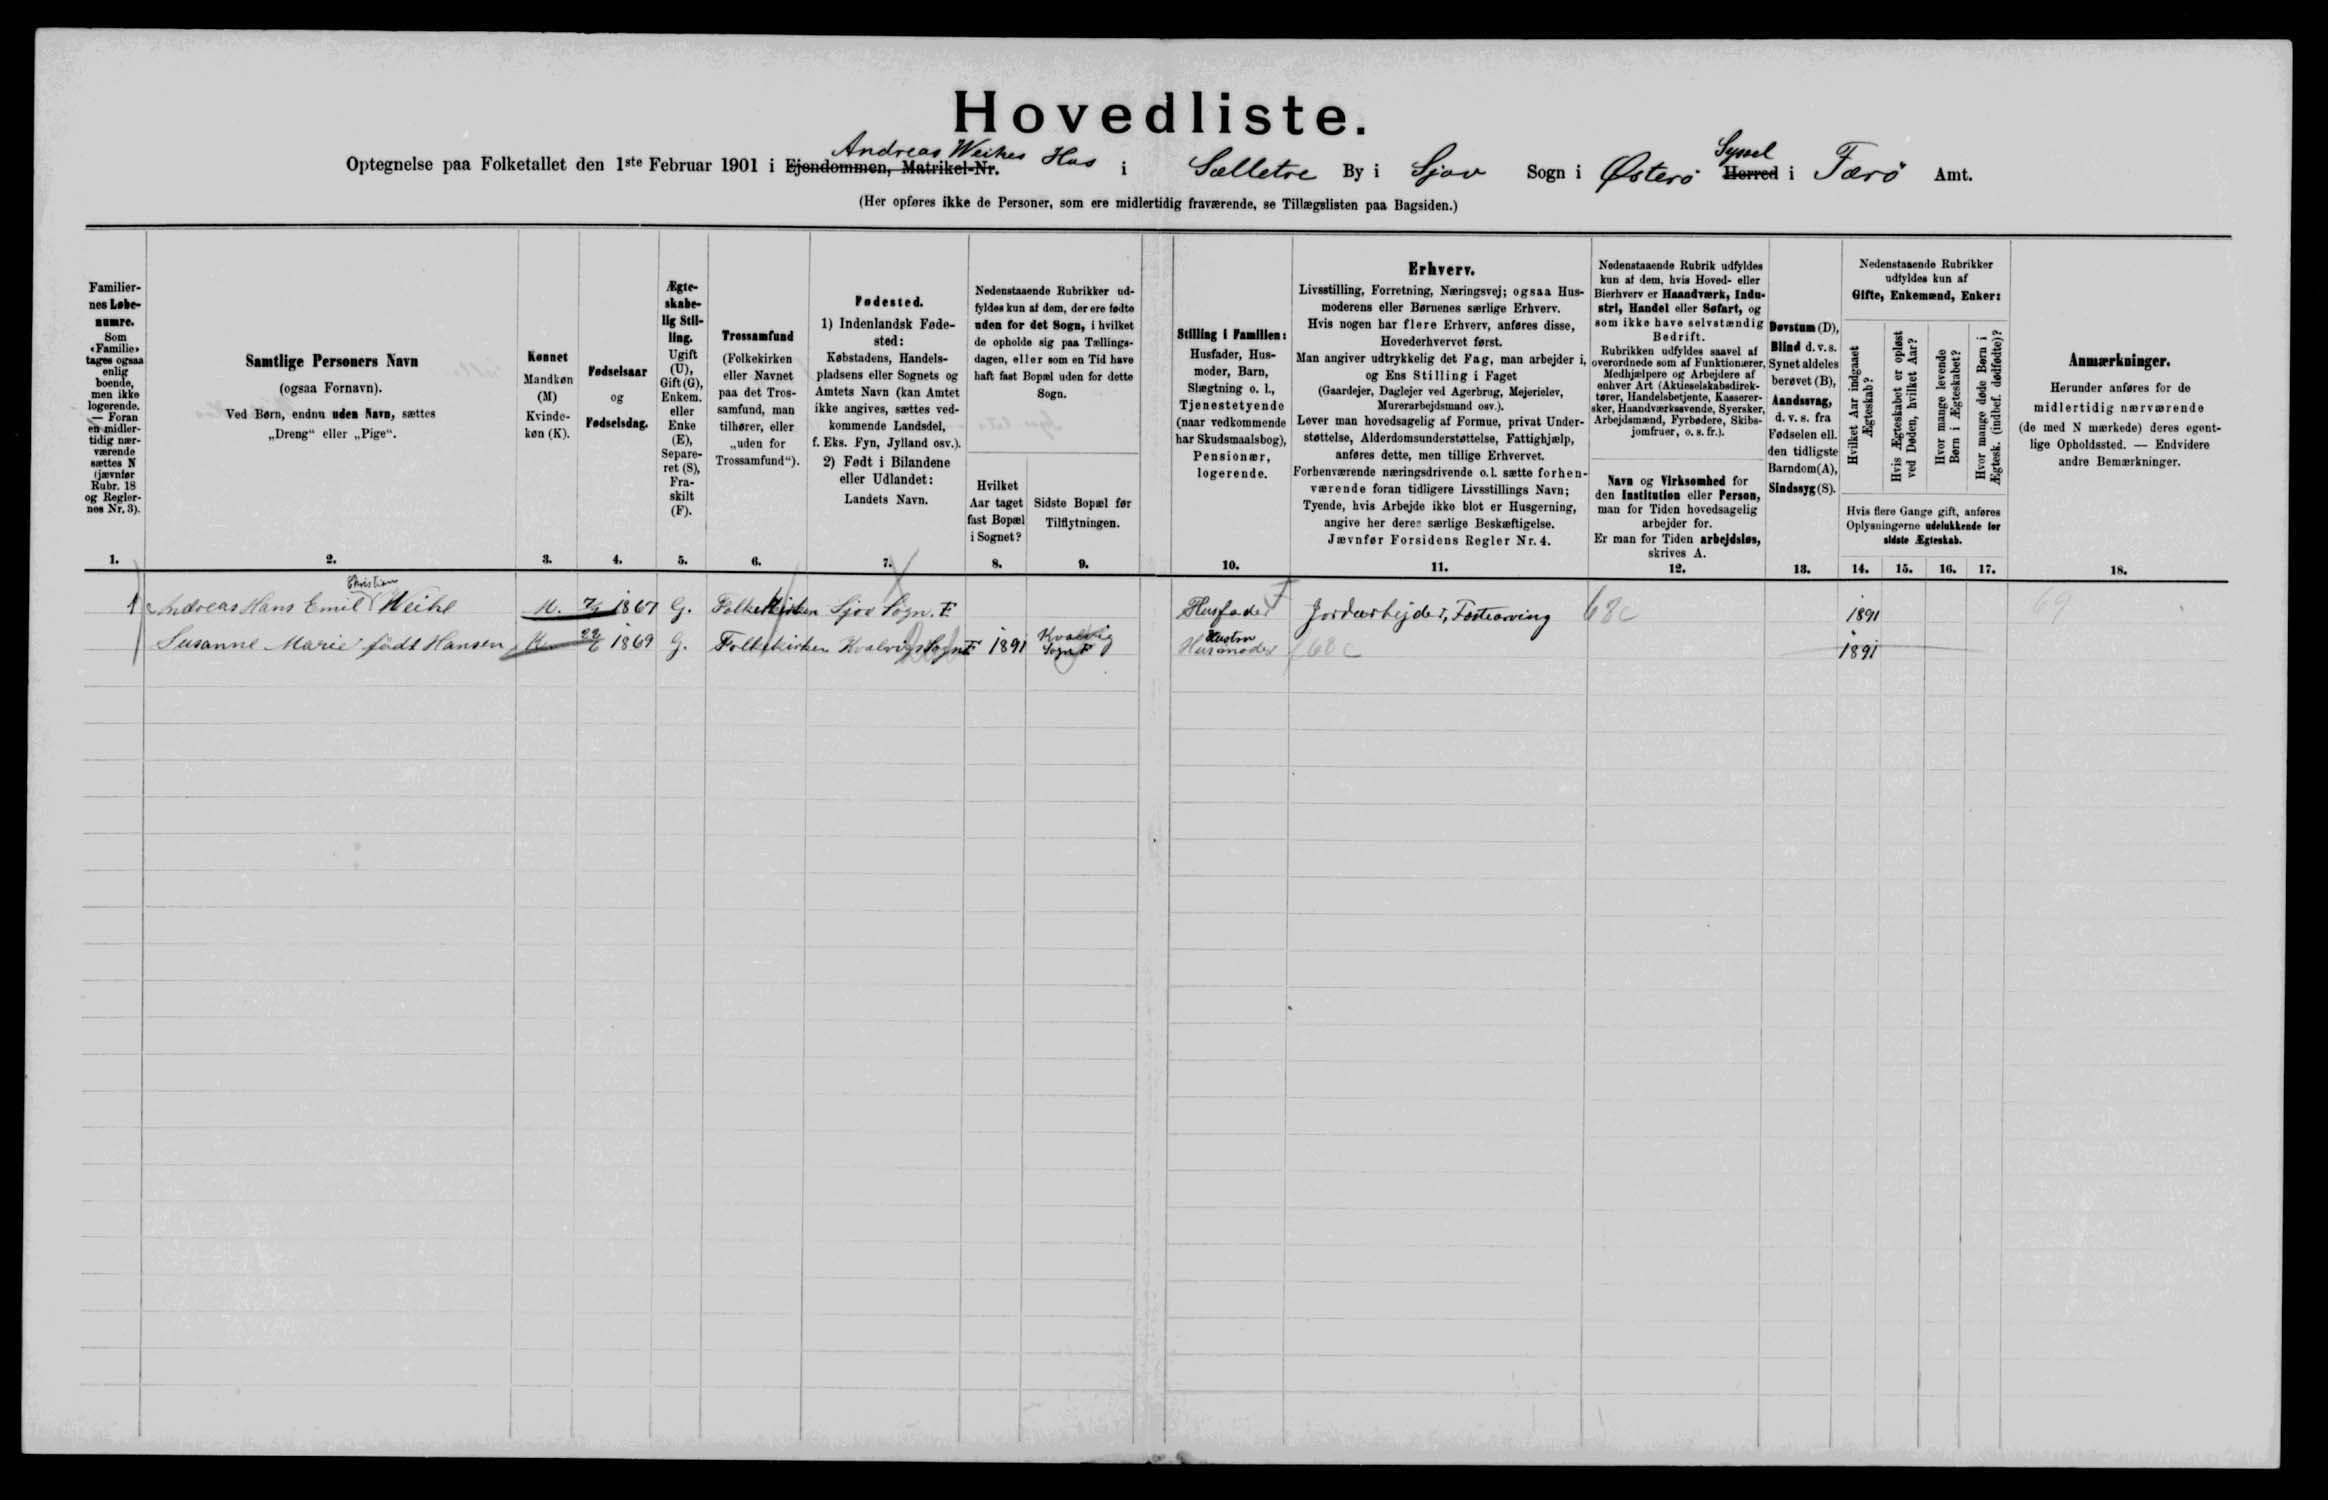 Hovedliste.
Optegnelse paa Folketallet den 1ste Februar 1901 i Ejendommen, Matrikel-Nr. Andreas Weihes Hus i Selletræ By i Sjov Sogn i Østerö Herred Syssel i Færö Amt.
(Her opføres ikke de Personer, som ere midlertidig fraværende, se Tillægslisten paa Bagsiden.)
Familier-
nes Løbe-
numre.
Som
«Familie»
tages ogsaa
enlig
boende,
men ikke
logerende.
— Foran
en midler-
tidig nær-
værende
sættes N
(jævnfør
Rubr. 18
og Regler-
nes Nr. 3).
1.
Samtlige Personers Navn
(ogsaa Fornavn).
Ved Børn, endnu uden Navn, sættes
„Dreng" eller „Pige".
2.
Kønnet
Mandkøn
(M)
Kvinde-
køn (K).
3.
Fødselsaar
og
Fødselsdag.
4.
Ægte-
skabe-
lig Stil-
ling.
Ugift
(U),
Gift (G),
Enkem.
eller
Enke
(E),
Separe-
ret (S),
Fra-
skilt
(F).
5.
Trossamfund
(Folkekirken
eller Navnet
paa det Tros-
samfund, man
tilhører, eller
„uden for
Trossamfund").
6.
Fødested.
1) Indenlandsk Føde-
sted:
Købstadens, Handels-
pladsens eller Sognets og
Amtets Navn (kan Amtet
ikke angives, sættes ved-
kommende Landsdel,
f. Eks. Fyn, Jylland osv.).
2) Født i Bilandene
eller Udlandet:
Landets Navn.
7.
Nedenstaaende Rubrikker ud-
fyldes kun af dem, der ere fødte
uden for det Sogn, i hvilket
de opholde sig paa Tællings-
dagen, eller som en Tid have
haft fast Bopæl uden for dette
Sogn.
Hvilket
Aar taget
fast Bopæl
i Sognet?
8.
Sidste Bopæl før
Tilflytningen.
9.
Stilling i Familien:
Husfader, Hus-
moder, Barn,
Slægtning o. l.,
Tjenestetyende
(naar vedkommende
har Skudsmaalsbog),
Pensionær,
logerende.
10.
Erhverv.
Livsstilling, Forretning, Næringsvej; ogsaa Hus-
moderens eller Børnenes særlige Erhverv.
Hvis nogen har flere Erhverv, anføres disse,
Hovederhvervet først.
Man angiver udtrykkelig det Fag, man arbejder i,
og Ens Stilling i Faget
(Gaardejer, Daglejer ved Agerbrug, Mejerielev,
Murerarbejdsmand osv.).
Lever man hovedsagelig af Formue, privat Under-
støttelse, Alderdomsunderstøttelse, Fattighjælp,
anføres dette, men tillige Erhvervet.
Forhenværende næringsdrivende o. l. sætte forhen-
værende foran tidligere Livsstillings Navn;
Tyende, hvis Arbejde ikke blot er Husgerning,
angive her deres særlige Beskæftigelse.
Jævnfør Forsidens Regler Nr. 4.
11.
Nedenstaaende Rubrik udfyldes
kun af dem, hvis Hoved- eller
Bierhverv er Haandværk, Indu-
stri, Handel eller Søfart, og
som ikke have selvstændig
Bedrift.
Rubrikken udfyldes saavel af
overordnede som af Funktionærer,
Medhjælpere og Arbejdere af
enhver Art (Aktieselskabsdirek-
tører, Handelsbetjente, Kasserer-
sker, Haandværkssvende, Syersker,
Arbejdsmænd, Fyrbødere, Skibs-
jomfruer, o. s. fr.).
Navn og Virksomhed for
den Institution eller Person,
man for Tiden hovedsagelig
arbejder for.
Er man for Tiden arbejdsløs,
skrives A.
12.
Døvstum (D),
Blind d. v. s.
Synet aldeles
berøvet (B),
Aandssvag,
d. v. s. fra
Fødselen ell.
den tidligste
Barndom (A),
Sindssyg (S).
13.
Nedenstaaende Rubrikker
udfyldes kun af
Gifte, Enkemænd, Enker:
Hvilket Aar indgaaet
Ægteskab?
Hvis Ægteskabet er opløst
ved Døden, hvilket Aar?
Hvor mange levende
Børn i Ægteskabet?
Hvor mange døde Børn i
Ægtesk. (indbef. dødfødte)?
Hvis flere Gange gift, anføres
Oplysningerne udelukkende for
sidste Ægteskab.
14. 15. 16. 17.
Anmærkninger.
Herunder anføres for de
midlertidig nærværende
(de med N mærkede) deres egent-
lige Opholdssted. — Endvidere
andre Bemærkninger.
18.
1 Andreas Hans Emil Christian Weihe M. 1867 G. Folkekirken Sjov Sogn. F Husfader Jordarbejder, Fæstearving 68c 1891 69
Susanne Marie født Hansen K 1869 G. Folkekirken Kvalvig Sogn F 1891 Kvalvig Sogn F Husmoder Hustru 68c 1891